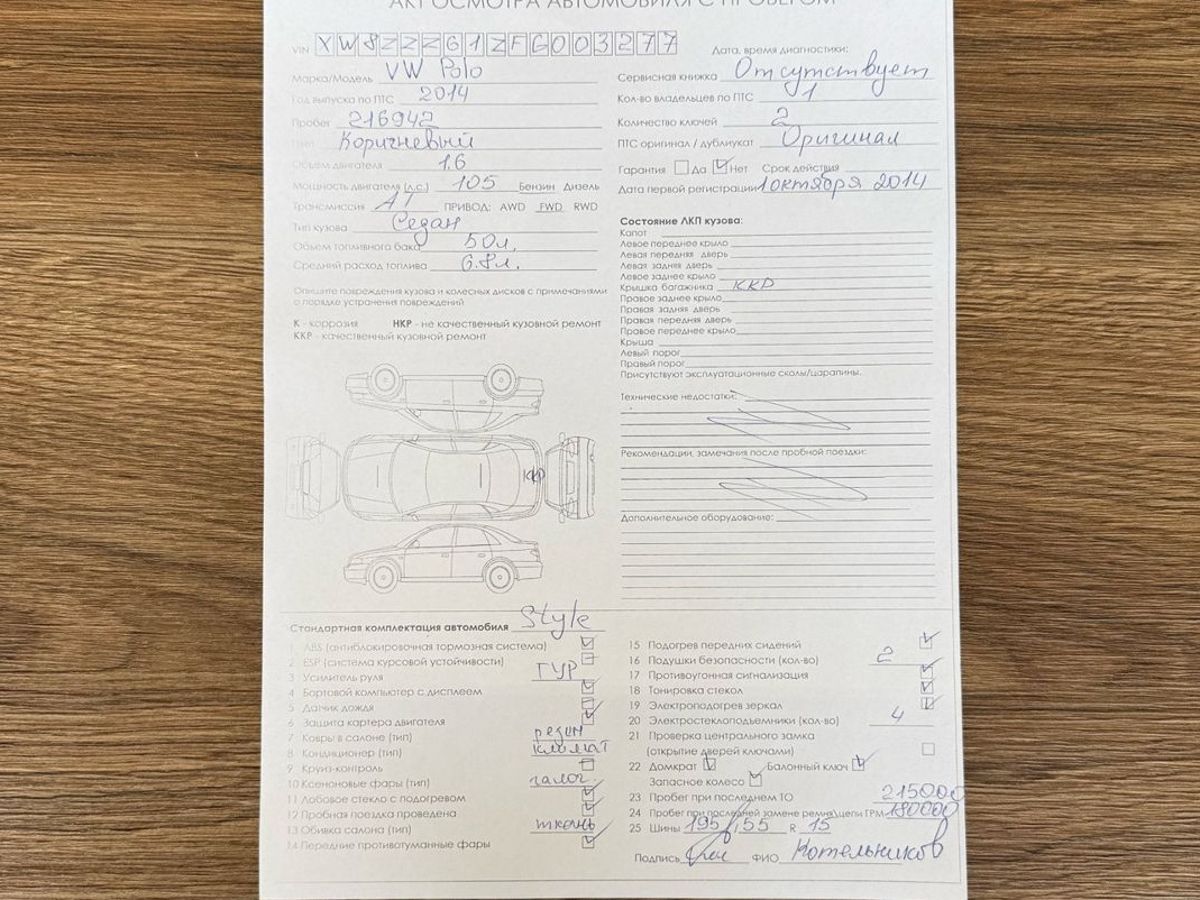 АКТ ОСМОТРА АВТОМОБИЛЯ С ПРОБЕГОМ
VIN XW8ZZZ61ZFG003277
Дата, время диагностики:
Марка/Модель VW Polo
Год выпуска по ПТС 2014
Пробег 216942
Цвет Коричневый
Объем двигателя 1.6
Мощность двигателя (л.с.) 105 Бензин Дизель
Трансмиссия АТ ПРИВОД: AWD FWD RWD
Тип кузова Седан
Объем топливного бака 50л.
Средний расход топлива 6.8л.
Опишите повреждения кузова и колесных дисков с примечаниями
о порядке устранения повреждений
К - коррозия НКР - не качественный кузовной ремонт
ККР - качественный кузовной ремонт
ККР
Сервисная книжка Отсутствует
Кол-во владельцев по ПТС 1
Количество ключей 2
ПТС оригинал / дубликат Оригинал
Гарантия Да Нет Срок действия
Дата первой регистрации 1 октября 2014
Состояние ЛКП кузова:
Капот
Левое переднее крыло
Левая передняя дверь
Левая задняя дверь
Левое заднее крыло
Крышка багажника ККР
Правое заднее крыло
Правая задняя дверь
Правая передняя дверь
Правое переднее крыло
Крыша
Левый порог
Правый порог
Присутствуют эксплуатационные сколы/царапины.
Технические недостатки:
Рекомендации, замечания после пробной поездки:
Дополнительное оборудование:
Стандартная комплектация автомобиля Style
1 ABS (антиблокировочная тормозная система)
2 ESP (система курсовой устойчивости)
3 Усилитель руля ГУР
4 Бортовой компьютер с дисплеем
5 Датчик дождя
6 Защита картера двигателя
7 Ковры в салоне (тип) резин
8 Кондиционер (тип) климат
9 Круиз-контроль
10 Ксеноновые фары (тип) галог.
11 Лобовое стекло с подогревом
12 Пробная поездка проведена
13 Обивка салона (тип) ткань
14 Передние противотуманные фары
15 Подогрев передних сидений
16 Подушки безопасности (кол-во) 2
17 Противоугонная сигнализация
18 Тонировка стекол
19 Электроподогрев зеркал
20 Электростеклоподъемники (кол-во) 4
21 Проверка центрального замка
(открытие дверей ключами)
22 Домкрат Балонный ключ
Запасное колесо
23 Пробег при последнем ТО 215000
24 Пробег при последней замене ремня\цепи ГРМ 180000
25 Шины 195/55 R 15
Подпись ФИО Котельников